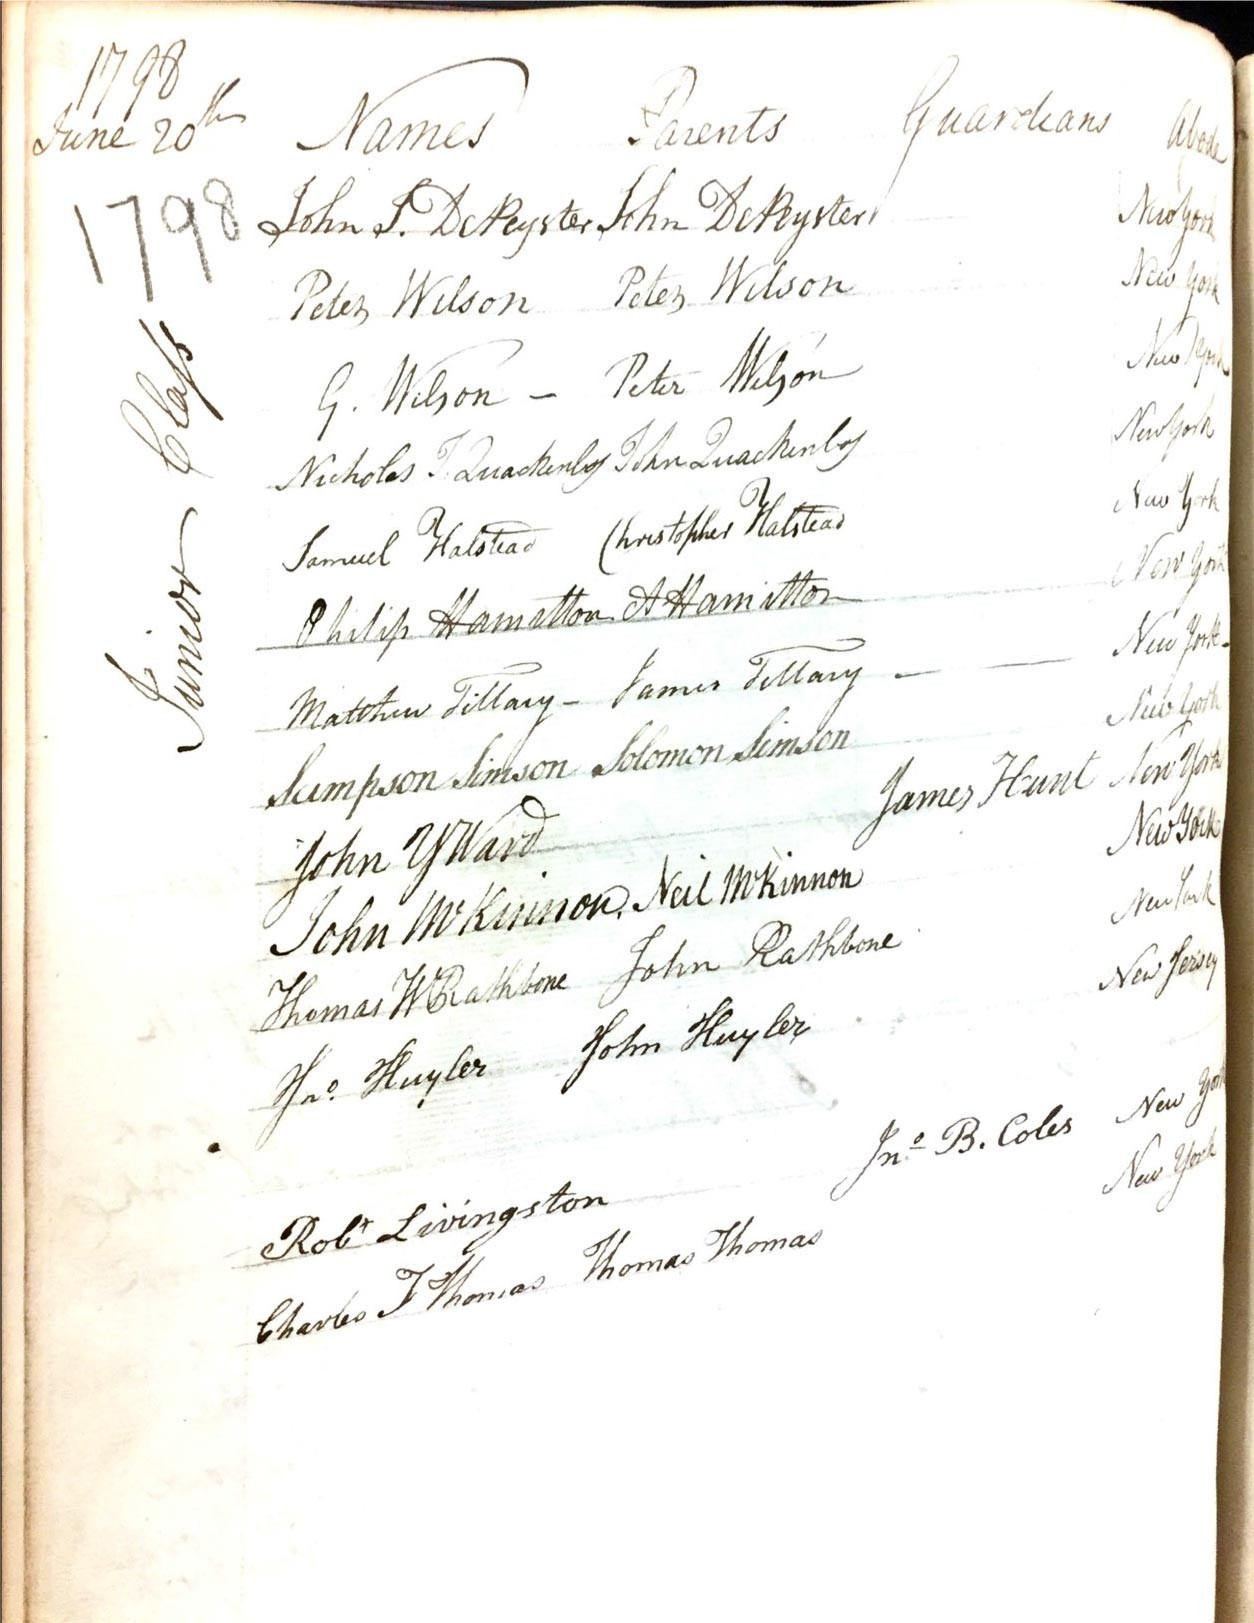 1798
June 20th Names Parents Guardians Abode
1798
Junior Class
John S. DePeyster John DePeyster New York
Peter Wilson Peter Wilson New York
G. Wilson - Peter Wilson New York
Nicholas J. Quackenbos John Quackenbos New York
Samuel Halstead Christopher Halstead New York
Philip Hamilton A Hamilton New York
Matthew Tillary - James Tillary - New York -
Sampson Simson Solomon Simson New York
John Y Ward James Hunt New York
John McKinnon. Neil McKinnon New York
Thomas W Rathbone John Rathbone New York
Jno. Huyler John Huyler New Jersey
Robt Livingston Jno B. Coles New York
Charles J Thomas Thomas Thomas New York